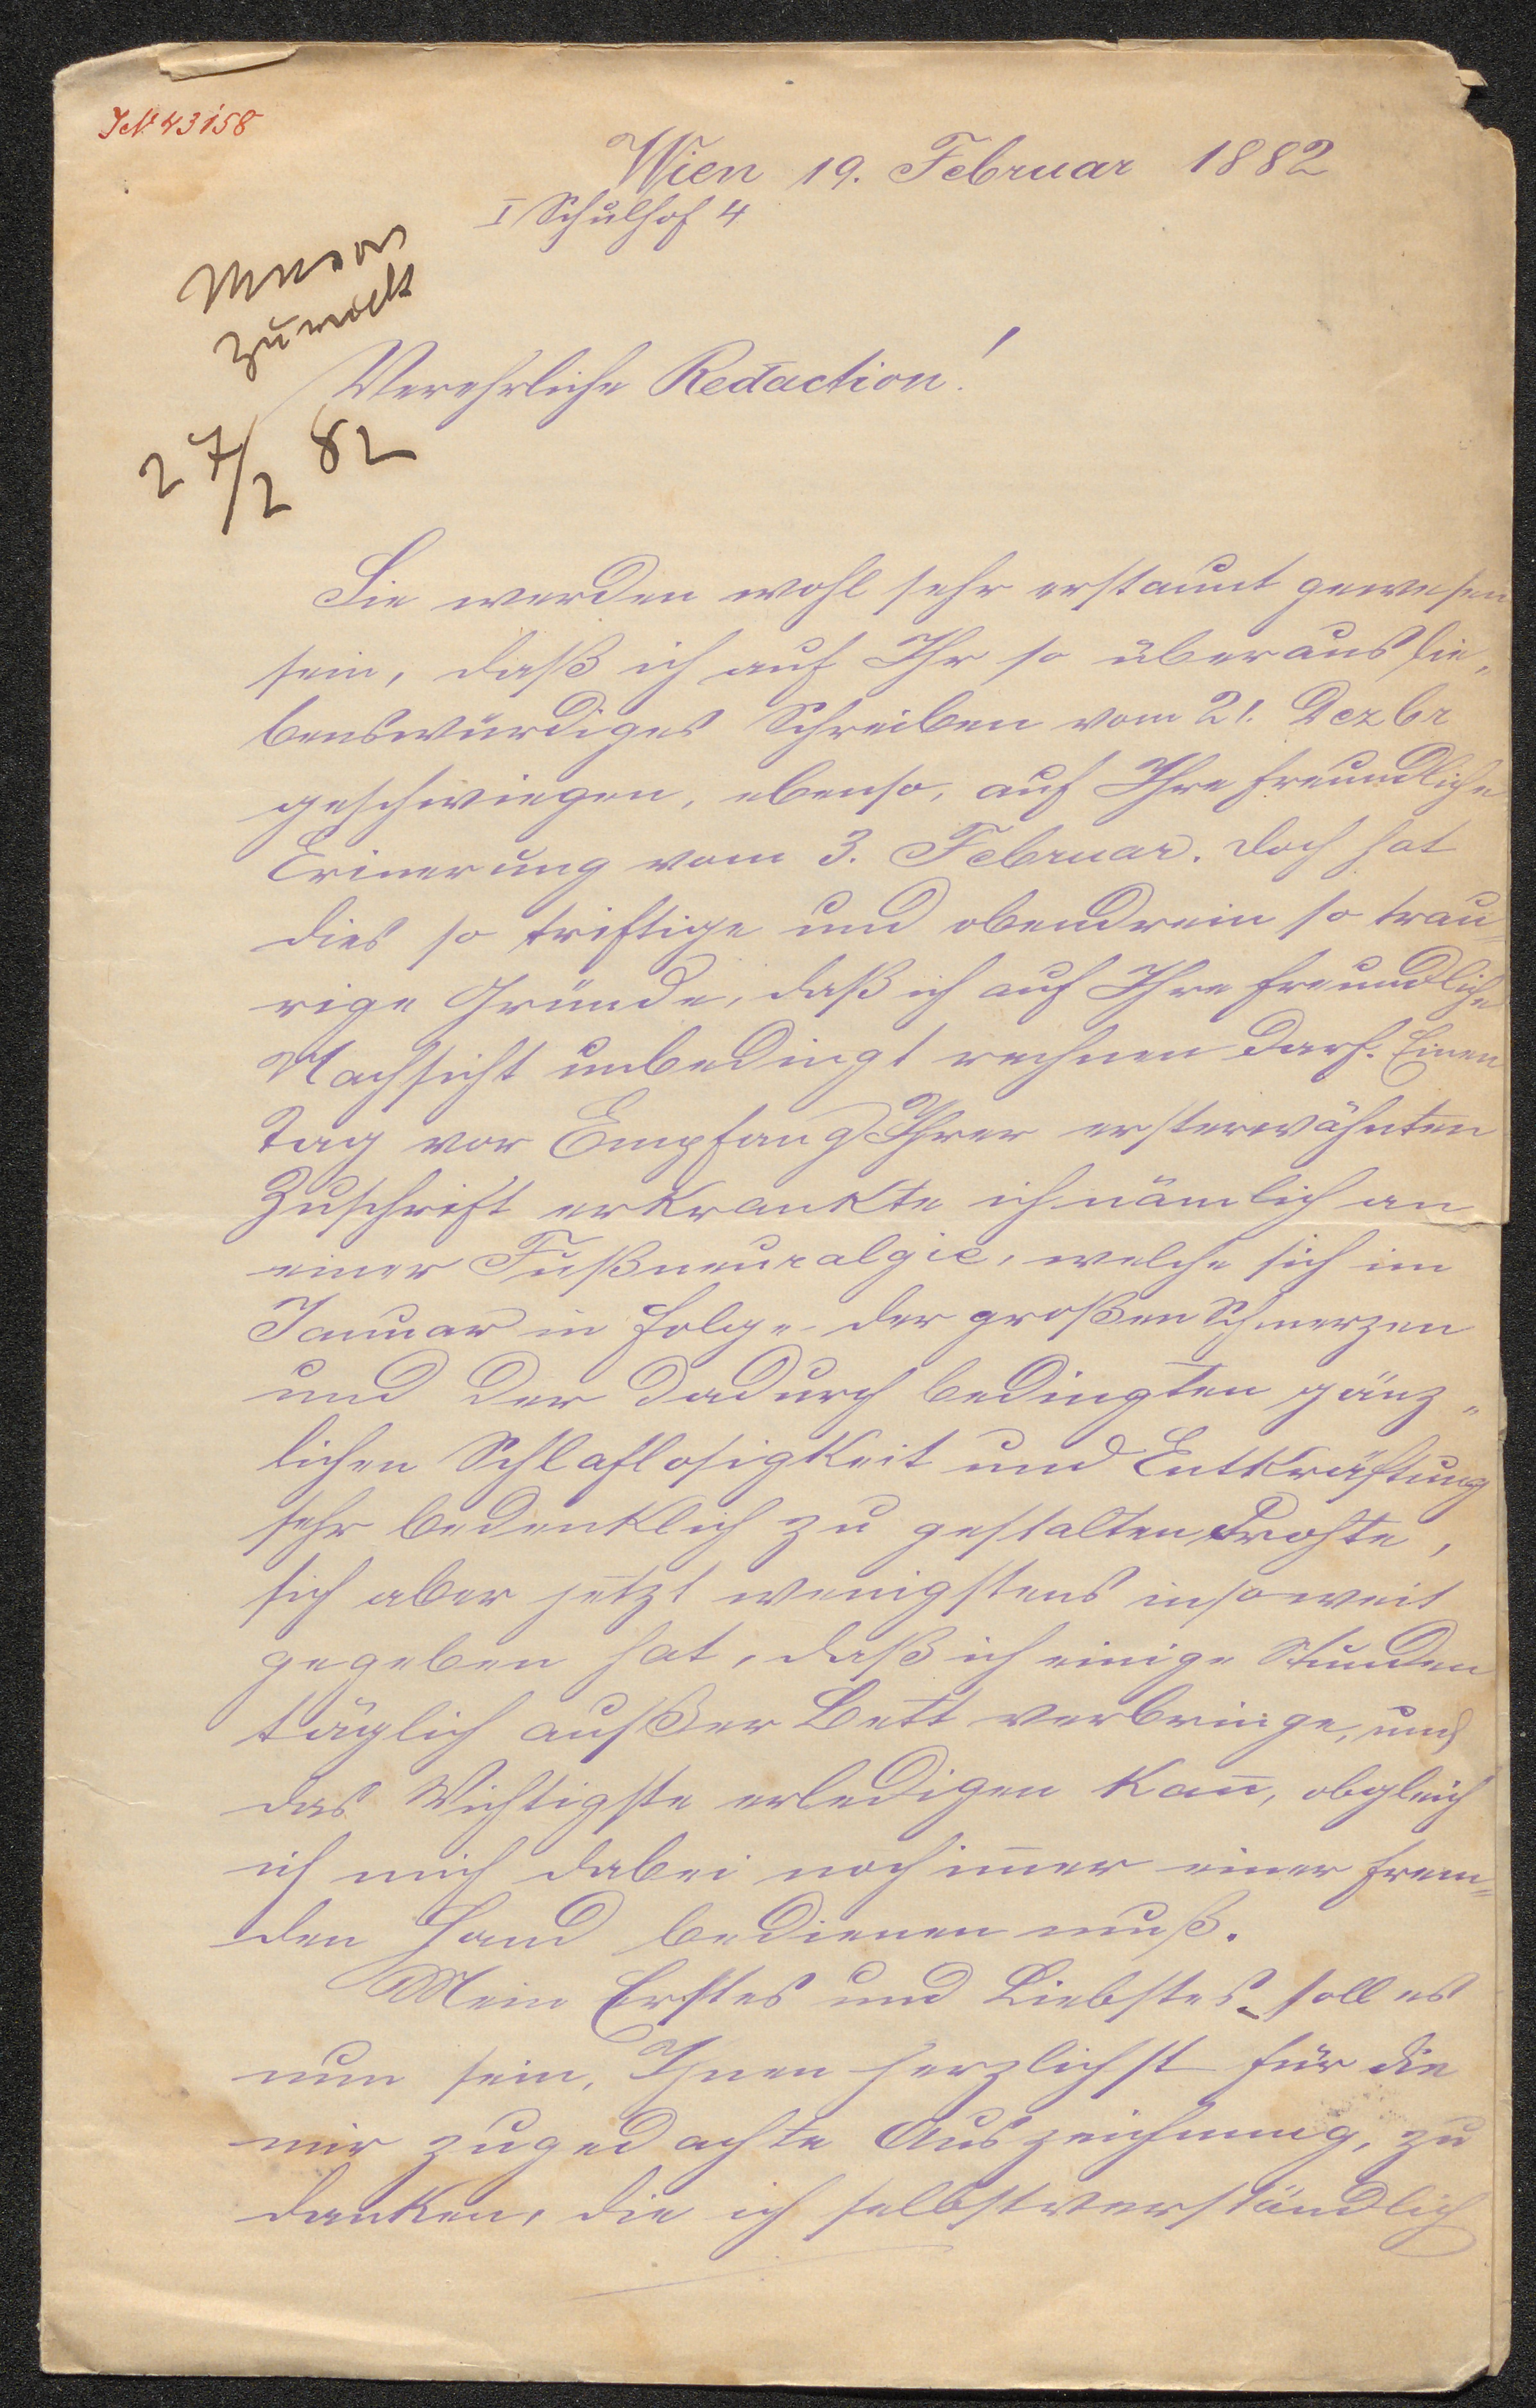 I.N. 43158
Wien 19. Februar 1882
I Schulhof 4
zurück
27/2 82
Verehrliche Redaction!
Sie werden wohl sehr erstaunt gewesen
sein, daß ich auf Ihr so überaus lie-
benswürdiges Schreiben vom 21. Dezbr
geschwiegen, ebenso, auf Ihre freundliche
Erinerung vom 3. Februar. Doch hat
dies so triftige und obendrein so trau-
rige Gründe, daß ich auf Ihre freundliche
Nachsicht unbedingt rechnen darf. Einen
Tag vor Empfang Ihrer ersterwähnten
Zuschrift erkrankte ich nämlich an
einer Fußneuralgie, welche sich im
Januar in Folge der großen Schmerzen
und der dadurch bedingten gänz-
lichen Schlaflosigkeit und Entkräftung
sehr bedenklich zu gestalten drohte,
sich aber jetzt wenigstens insoweit
gegeben hat, daß ich einige Stunden
täglich außer Bett verbringe, und
das Wichtigste erledigen kan̅, obgleich
ich mich dabei noch im̅er einer frem-
den Hand bedienen muß.
Mein Erstes und Liebstes soll es
nun sein, Ihnen herzlichst für die
mir zugedachte Auszeichnung, zu
danken, die ich selbstverständlich